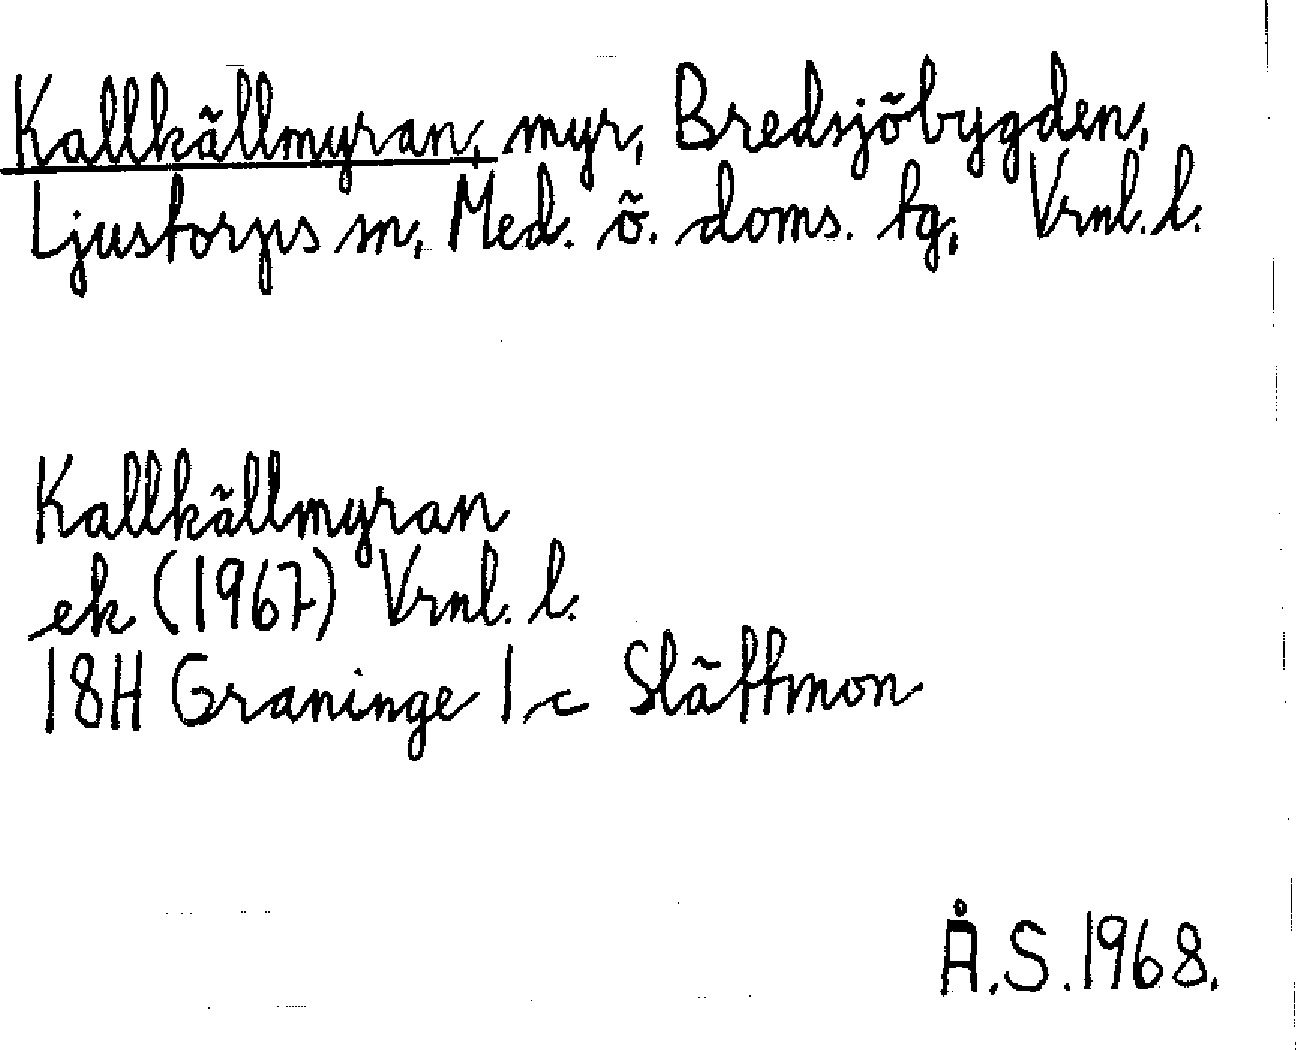 Kallkällmyran, myr, Bredsjöbygden,
Ljustorps sn, Med. ö. doms. tg, Vrnl. l.
Kallkällmyran
ek (1967) Vrnl. l.
18H Graninge 1 c Slättmon
Å.S. 1968.